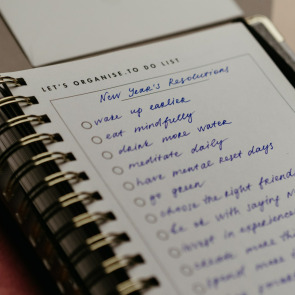 LET'S ORGANISE, TO DO LIST
New Year's Resolutions
wake up earlier
eat mindfully
drink more water
meditate daily
have mental reset days
go green
choose the right friends
be ok with saying
invest in experience
create more
spend more